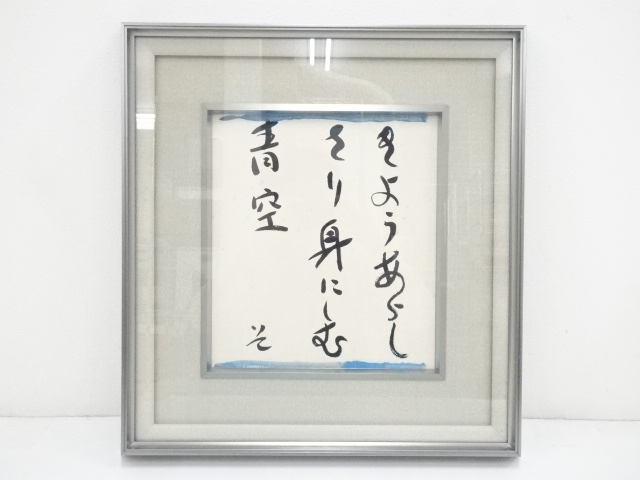 きようあらし
さり身にしむ
青空
そ